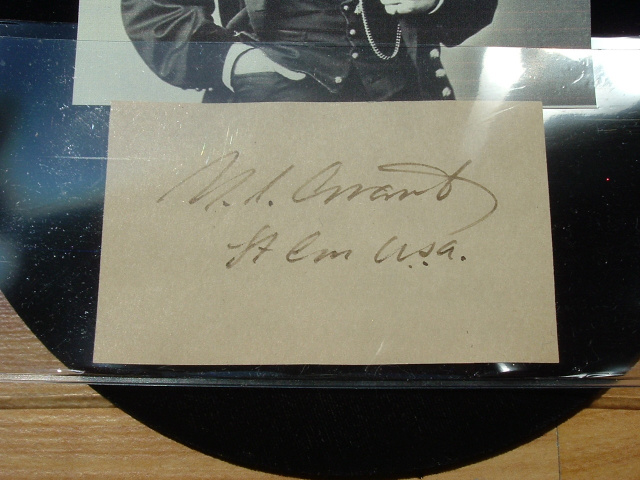 U.S. Grant
Lt Gen U.S.A.